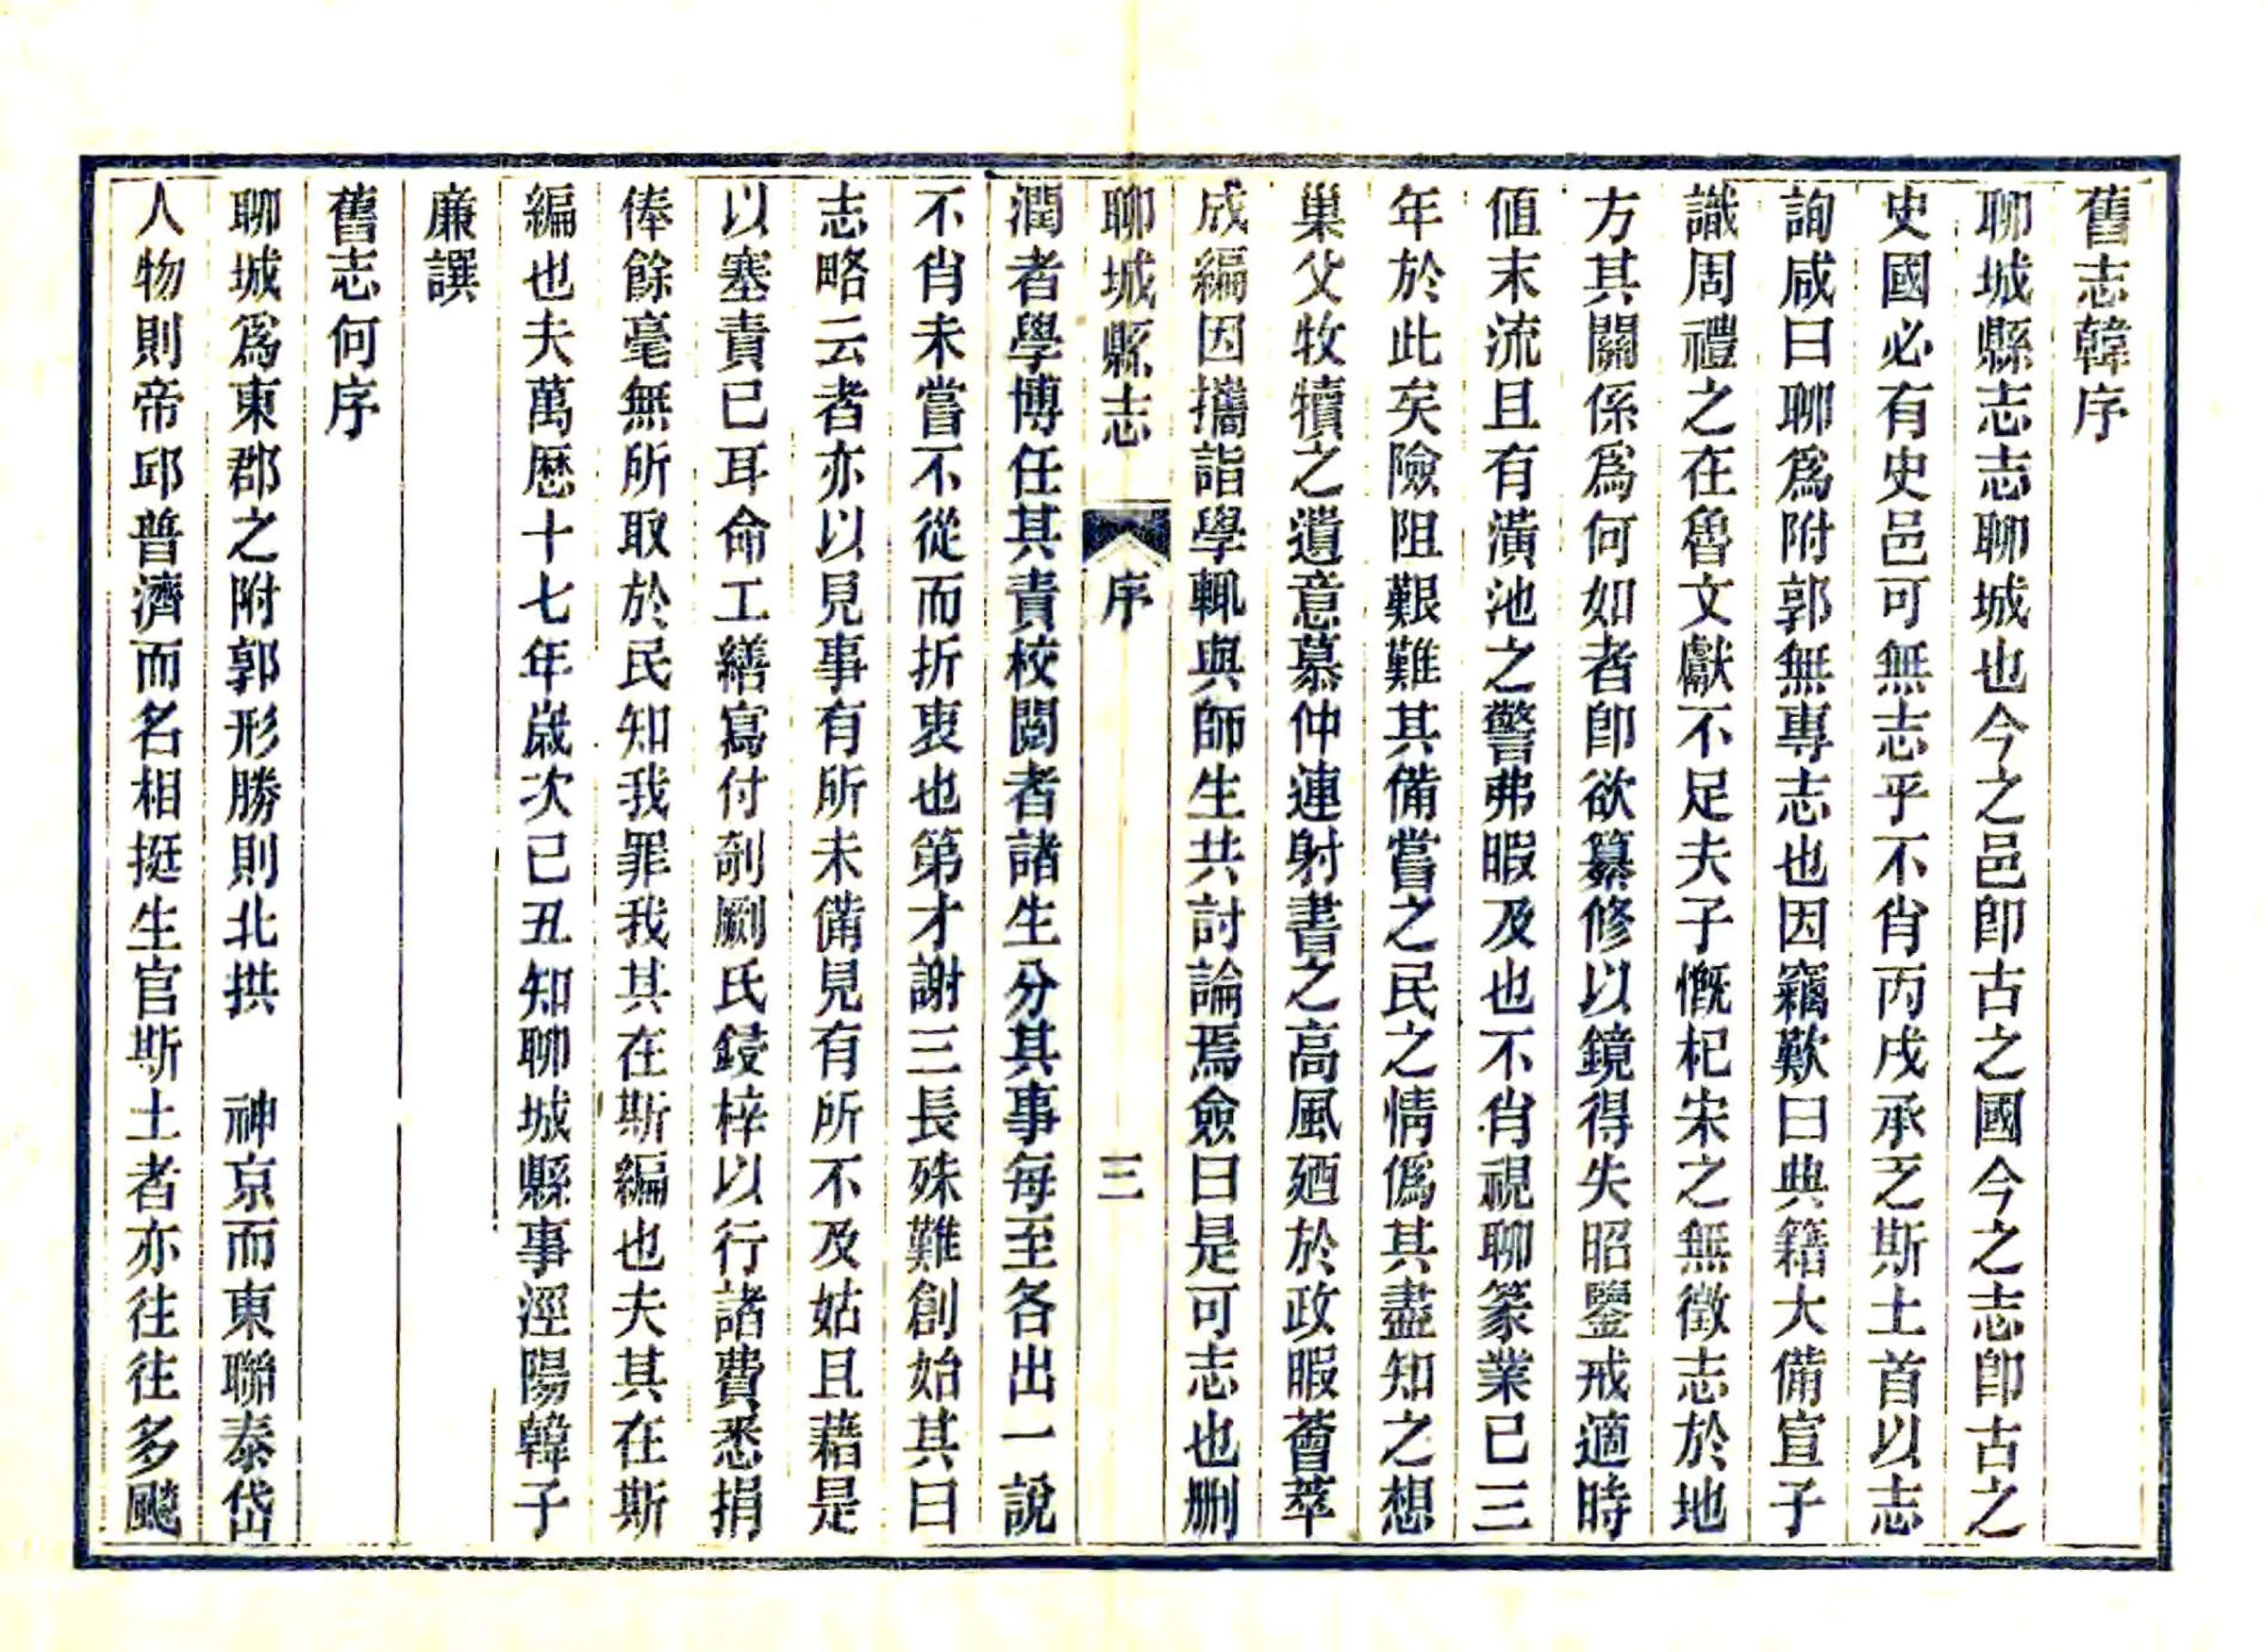 舊志韓序
聊城縣志志聊城也今之邑卽古之國今之志卽古之
史國必有史邑可無志乎不肖丙戌承乏斯土首以志
詢咸曰聊爲附郭無專志也因竊歎曰典籍大備宣子
識周禮之在魯文獻不足夫子慨杞宋之無徵志於地
方其關係爲何如者卽欲纂修以鏡得失昭鑒戒適時
値末流且有潢池之警弗暇及也不肖視聊篆業已三
年於此矣險阻艱難其備嘗之民之情僞其盡知之想
巢父牧犢之遺意慕仲連射書之高風廼於政暇薈萃
成編因攜詣學輒與師生共討論焉僉曰是可志也刪
聊城縣志 序 三
潤者學博任其責校閱者諸生分其事每至各出一說
不肖未嘗不從而折衷也第才謝三長殊難創始其曰
志略云者亦以見事有所未備見有所不及姑且藉是
以塞責已耳命工繕寫付剞劂氏鋟梓以行諸費悉捐
俸餘毫無所取於民知我罪我其在斯編也夫其在斯
編也夫萬曆十七年歲次己丑知聊城縣事涇陽韓子
廉譔
舊志何序
聊城爲東郡之附郭形勝則北拱　神京而東聯泰岱
人物則帝邱普濟而名相挺生官斯土者亦往往多颷